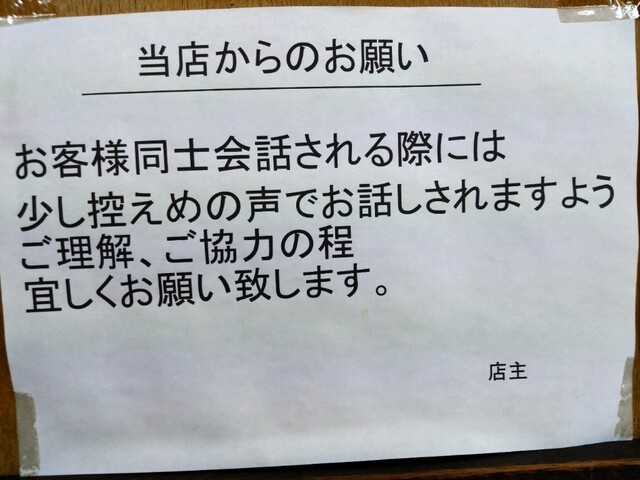 当店からのお願い
お客様同士会話される際には
少し控えめの声でお話しされますよう
ご理解、ご協力の程
宜しくお願い致します。
店主